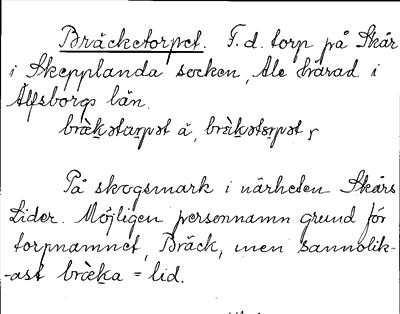 Bräcketorpet. F. d. torp på Skår
i Skepplanda socken, Ale härad i
Älfsborgs län.
På skogsmark i närheten Skårs
Lider. Möjligen personnamn grund för
torpnamnet, Bräck, men sannolik-
-ast = lid.